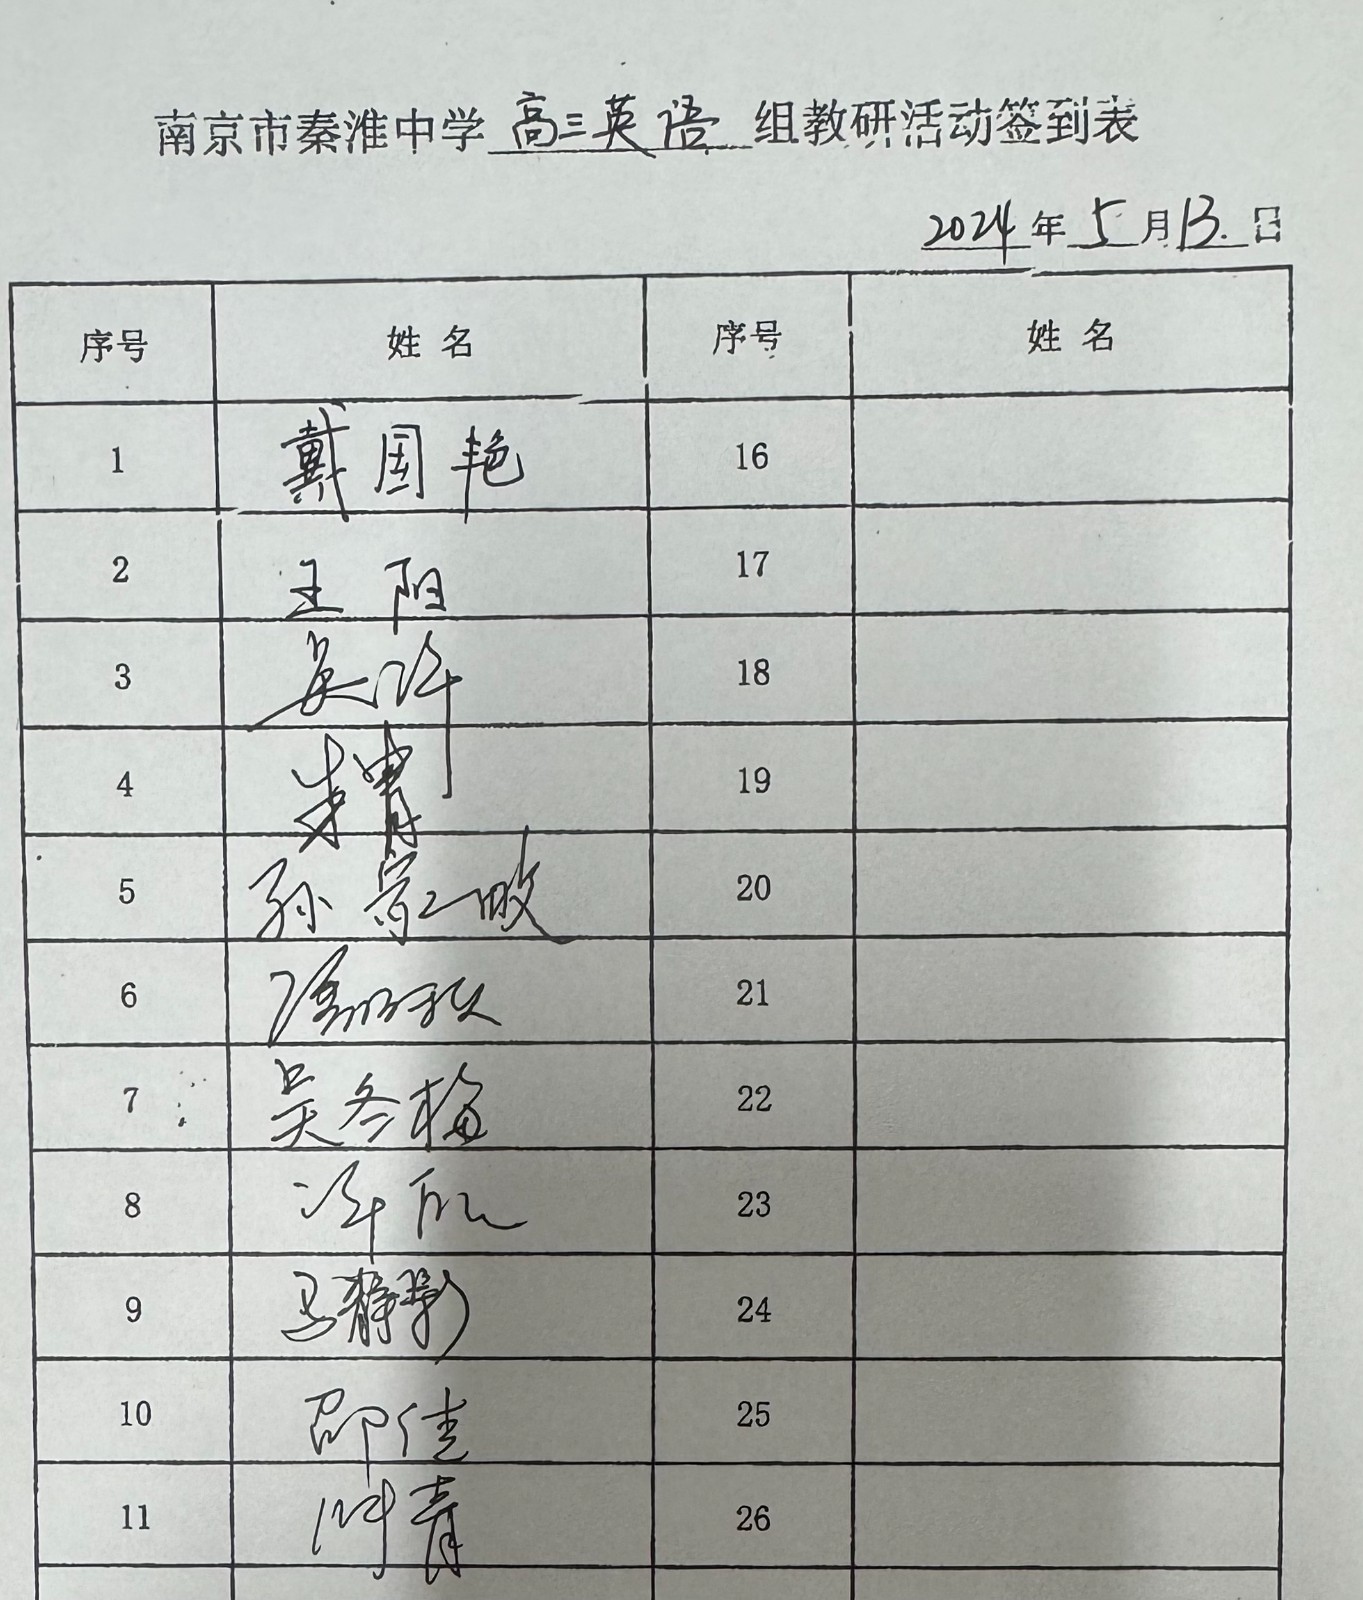 南京市秦淮中学 高三英语 组教研活动签到表
2024 年 5 月 13. 日
序号 姓名 序号 姓名
1 戴国艳 16
2 王阳 17
3 吴许 18
4 朱胄 19
5 孙 20
6 21
7 吴冬梅 22
8 23
9 马静影 24
10 邵佳 25
11 青 26